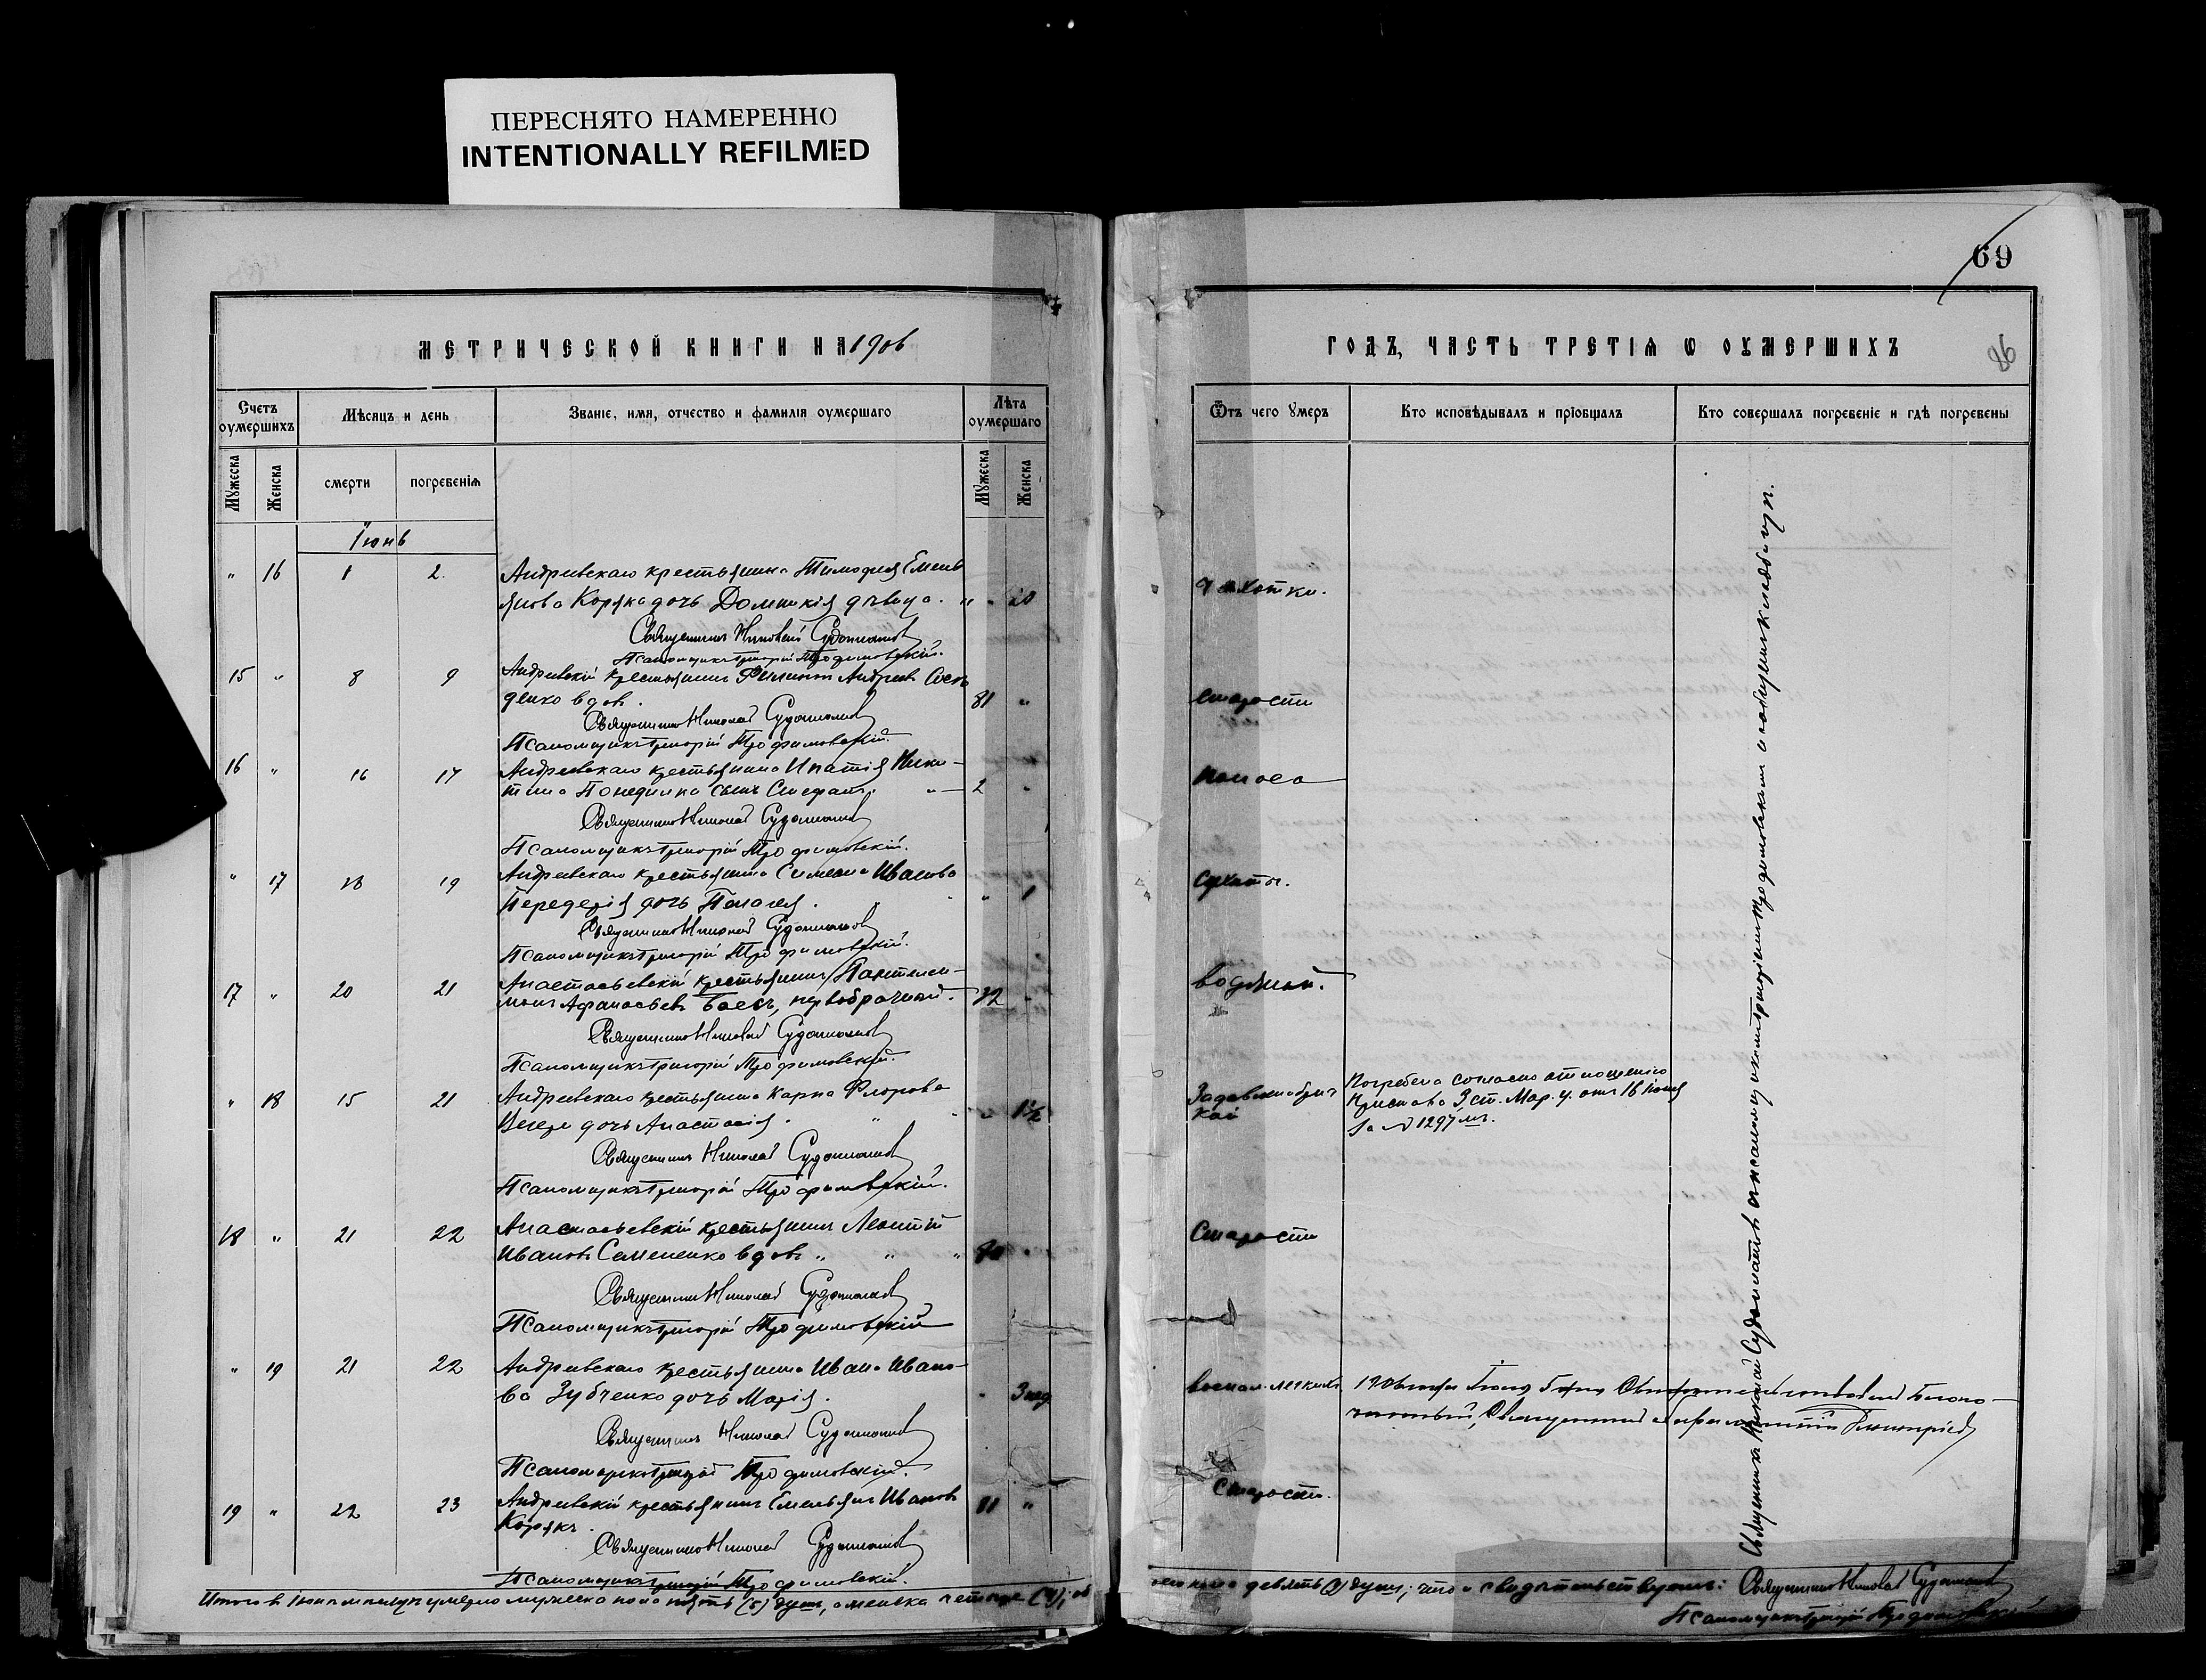 ПЕРЕСНЯТО НАМЕРЕННО
INTENTIONALLY REFILMED
МЕТРИЧЕСКОЙ КНИГИ НА 1906
Счетъ оумершихъ
Мѣсяцъ и день
Званіе, имя, отчество и фамилія оумершаго
Лѣта оумершаго
Мужеска
Женска
смерти
погребенія
Мужеска
Женска
Іюнь
" 16 1 2 Андреевскаго крестьянина Тимофея Емель
янова Коряка дочь Домникія дѣвица. " " 20
Священникъ Николай Судоплатовъ
Псаломщикъ Григорій Трофимовскій.
15 " 8 9 Андреевскій крестьянинъ Филиппъ Андреевъ
денко вдовъ. 81 "
Священникъ Николай Судоплатовъ
Псаломщикъ Григорій Трофимовскій.
16 " 16 17 Андреевскаго крестьянина Ипатія Ники-
тина сынъ Стефанъ. " 2 "
Священникъ Николай Судоплатовъ
Псаломщикъ Григорій Трофимовскій.
" 17 18 19 Андреевскаго крестьянина Симеона Иванова
Передерія дочь Пелагея. " 1
Священникъ Николай Судоплатовъ
Псаломщикъ Григорій Трофимовскій.
17 " 20 21 Анастасьевскій крестьянинъ Пантелеи-
монъ Афанасьевъ Боесъ, первобрачный. "
Священникъ Николай Судоплатовъ
Псаломщикъ Григорій Трофимовскій.
" 18 15 21 Андреевскаго крестьянина Карпа Флорова
дочь Анастасія. " " 1½
Священникъ Николай Судоплатовъ
Псаломщикъ Григорій Трофимовскій.
18 " 21 22 Анастасьевскій крестьянинъ Леонтій
Ивановъ Семененко вдовъ " " "
Священникъ Николай Судоплатовъ
Псаломщикъ Григорій Трофимовскій
" 19 21 22 Андреевскаго крестьянина Ивана Ивано-
ва Зубченко дочь Марія. " 3 нед
Священникъ Николай Судоплатовъ
Псаломщикъ Григорій Трофимовскій.
19 " 22 23 Андреевскій крестьянинъ Емельянъ Ивановъ
Корякъ. 81 "
Священникъ Николай Судоплатовъ
Псаломщикъ Григорій Трофимовскій.
Итого въ Іюнѣ умерло мужеска пола пять (5) душъ, а женска четыре (4), об
69
86
ГОДЪ, ЧАСТЬ ТРЕТІЯ Ѡ ОУМЕРШИХЪ
Ѿтъ чего умеръ
Кто исповѣдывалъ и пріобщалъ
Кто совершалъ погребеніе и гдѣ погребены
чахотки.
старости
поноса
сухоты.
водянки.
Погребена согласно отношенію
Пристава 3 ст. Мар. у. отъ 16 Іюня
за № 1297мъ.
Старости
воспал. легкихъ
Старости.
Священникъ Николай Судоплатовъ съ псаломщикомъ Григоріемъ Трофимовскимъ на общемъ кладбищѣ.
девять (9) душъ; что и свидѣтельствуемъ: Священникъ Николай Судоплатовъ
Псаломщикъ Григорій Трофимовскій